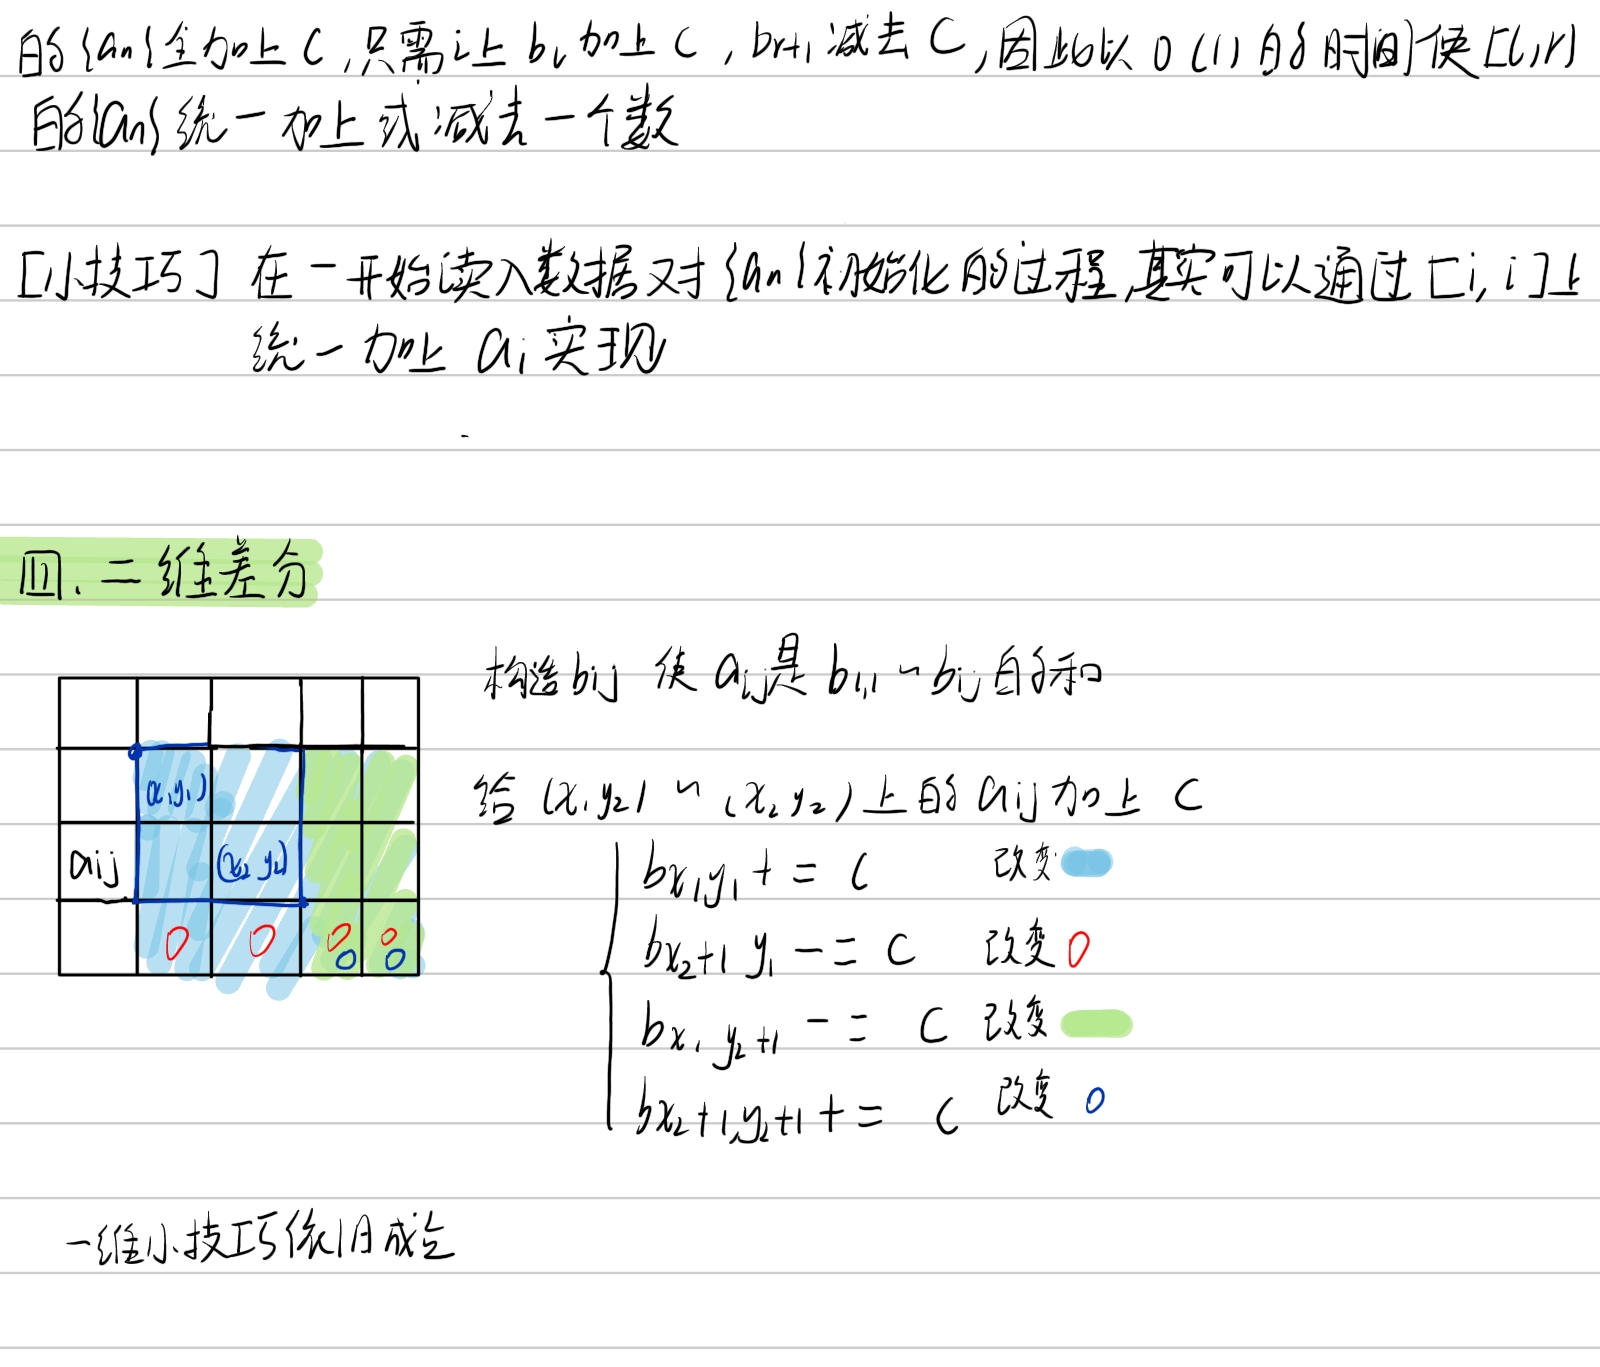 的{an}全加上C,只需让bl加上C,br+1减去C,因此以O(1)的时间使[l,r]
的{an}统一加上或减去一个数
[小技巧] 在一开始读入数据对{an}初始化的过程,其实可以通过[i,i]上
统一加上ai实现
四.二维差分
构造bij 使aij是b1,1~bij的和
给(x1y2)~(x2y2)上的aij加上C
(x1y1)
aij
(x2y2)
0 0 0 0
0 0
bx1y1+=C 改变
bx2+1y1-=C 改变0
bx1y2+1-=C 改变
bx2+1,y2+1+=C 改变0
一维小技巧依旧成立